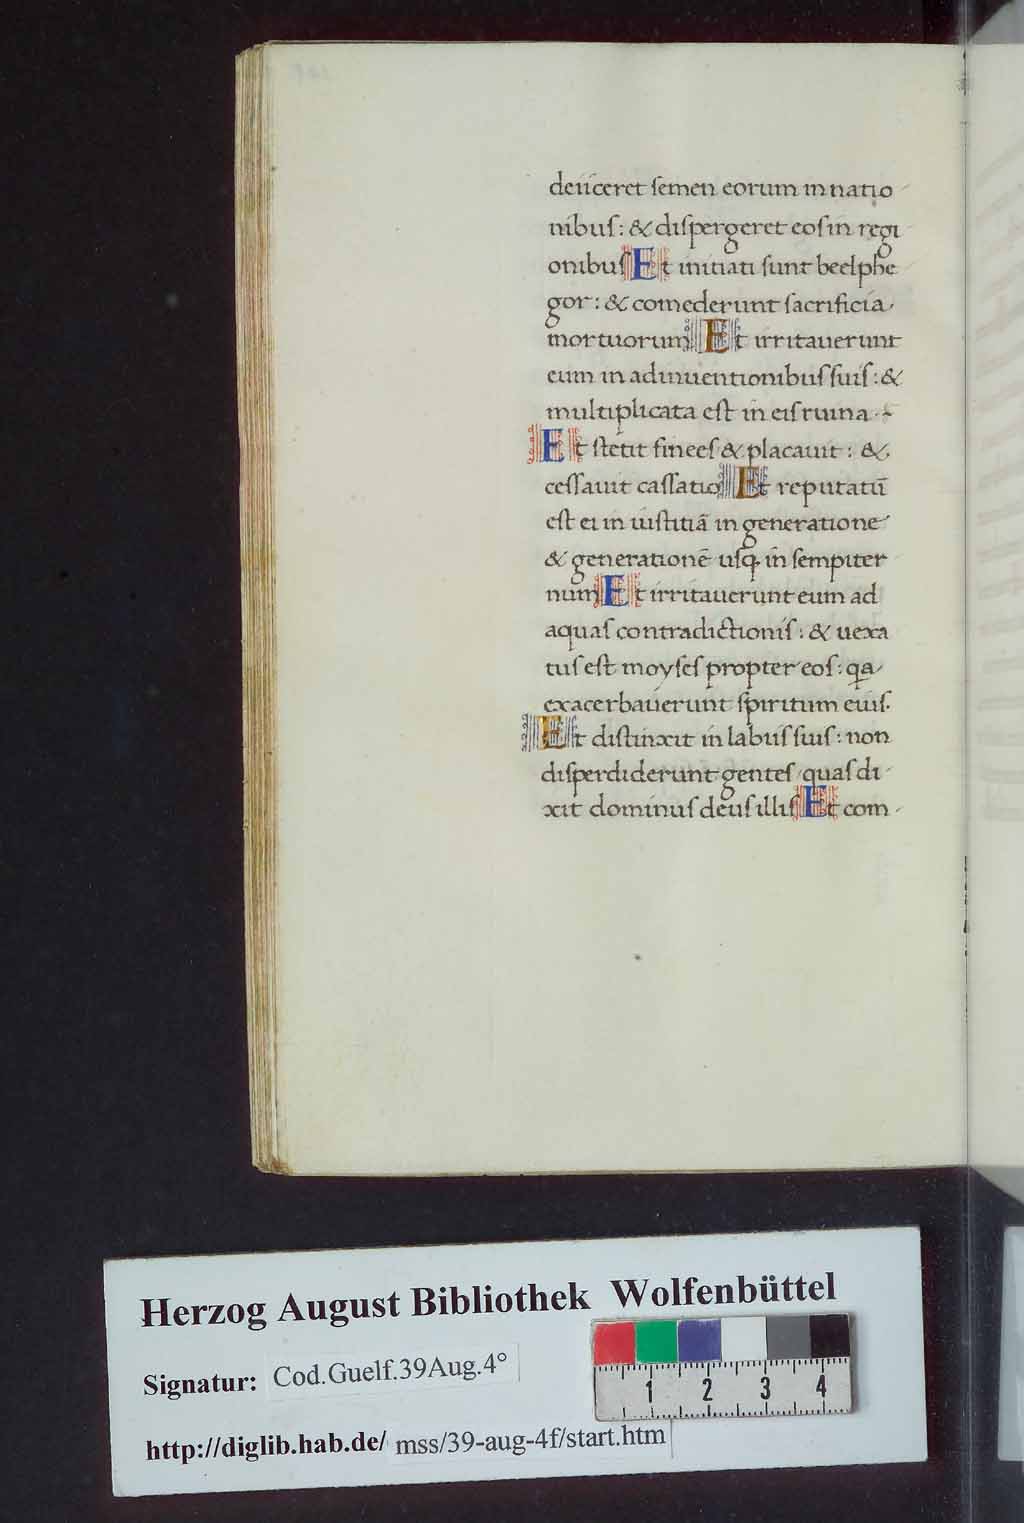 deiiceret semen eorum in natio
nibus: & dispergeret eos in regi
onibus Et initiati sunt beelphe
gor: & comederunt sacrificia
mortuorum Et irritauerunt
eum in adinuentionibus suis: &
multiplicata est in eis ruina.
Et stetit finees & placauit: &
cessauit cassatio Et reputatū
est ei in iustitiā in generatione
& generationē usq; in sempiter
num Et irritauerunt eum ad
aquas contradictionis: & uexa
tus est moyses propter eos: qa
exacerbauerunt spiritum eius.
Et distinxit in labiis suis: non
disperdiderunt gentes quas di
xit dominus deus illis Et com
Herzog August Bibliothek Wolfenbüttel
Signatur: Cod.Guelf.39Aug.4°
1 2 3 4
http://diglib.hab.de/ mss/39-aug-4f/start.htm